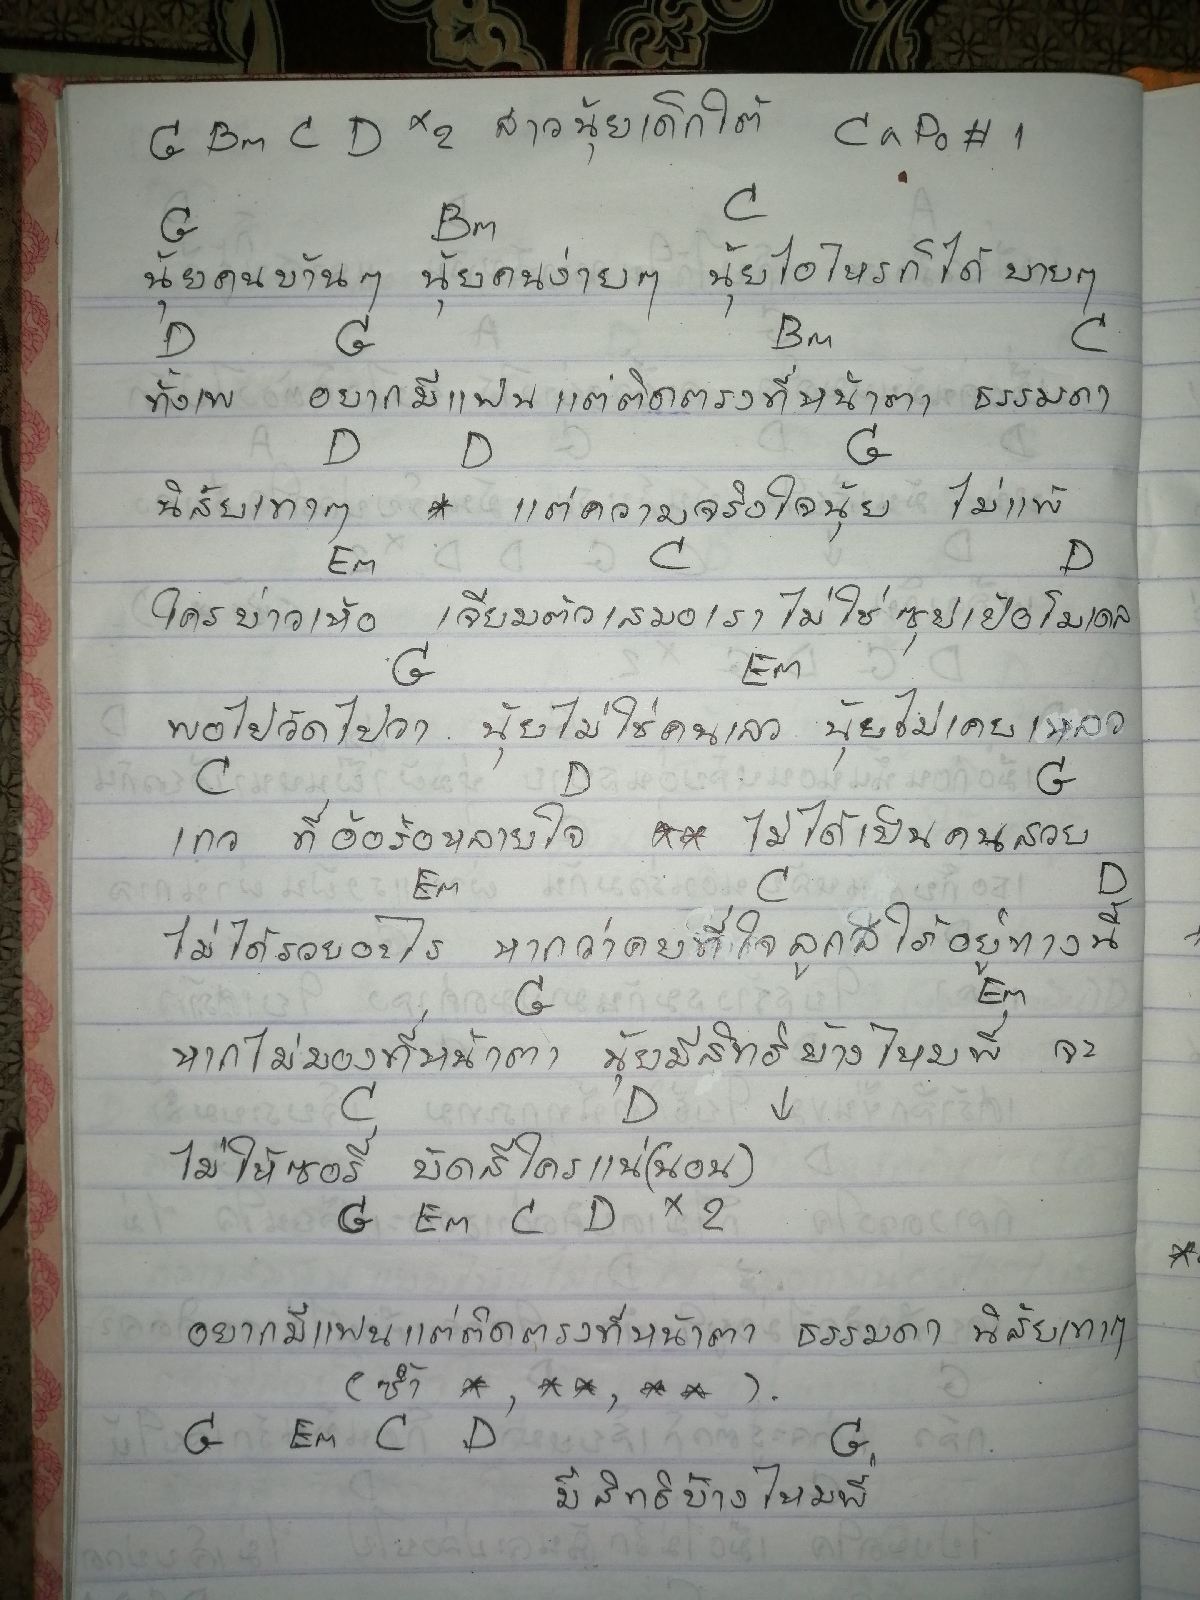 G Bm C D ×2 สาวนุ้ยเด็กใต้ CaPo#1
G Bm C
นุ้ยคนบ้านๆ นุ้ยคนง่ายๆ นุ้ยไอไหรก็ได้ บายๆ
D G Bm C
ทั้งเพ อยากมีแฟนแต่ติดตรงที่หน้าตา ธรรมดา
D D G
นิสัยเทาๆ * แต่ความจริงใจนุ้ย ไม่แพ้
Em C D
ใครบ่าวเห้อ เจียมตัวเสมอเราไม่ใช่ซุปเปอโมเดล
G Em
พอไปวัดไปวา นุ้ยไม่ใช่คนเลว นุ้ยไม่เคยเหลว
C D G
เกว ที่อ้อร้อหลายใจ ** ไม่ได้เป็นคนสวย
Em C D
ไม่ได้รวยอะไร หากว่าคบที่ใจลูกสีใต้อยู่ทางนี้
G Em
หากไม่มองที่หน้าตา นุ้ยมีสิทธิบ้างไหมพี่ จะ
C D ↓
ไม่ให้ซอรี่ บัดสีใครแน่(นอน)
G Em C D ×2
อยากมีแฟนแต่ติดตรงที่หน้าตา ธรรมดา นิสัยเทาๆ
(ซ้ำ *, **, **).
G Em C D G
มีสิทธิบ้างไหมพี่